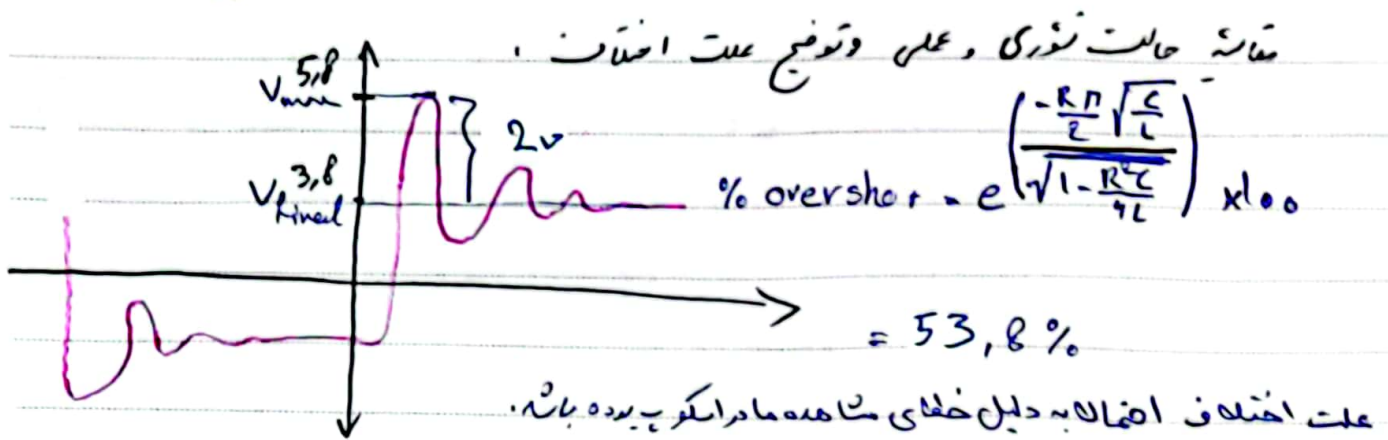 مقایسه حالت تئوری و عملی و توضیح علت اختلاف :
5,8
V
3,8
V final
2v
% overshoot = e^((-Rπ/2 √(C/L)) / √(1 - R²C/4L)) x100
= 53,8 %
علت اختلاف احتمالا به دلیل خطای مشاهده ما در اسکوپ بوده باشد.